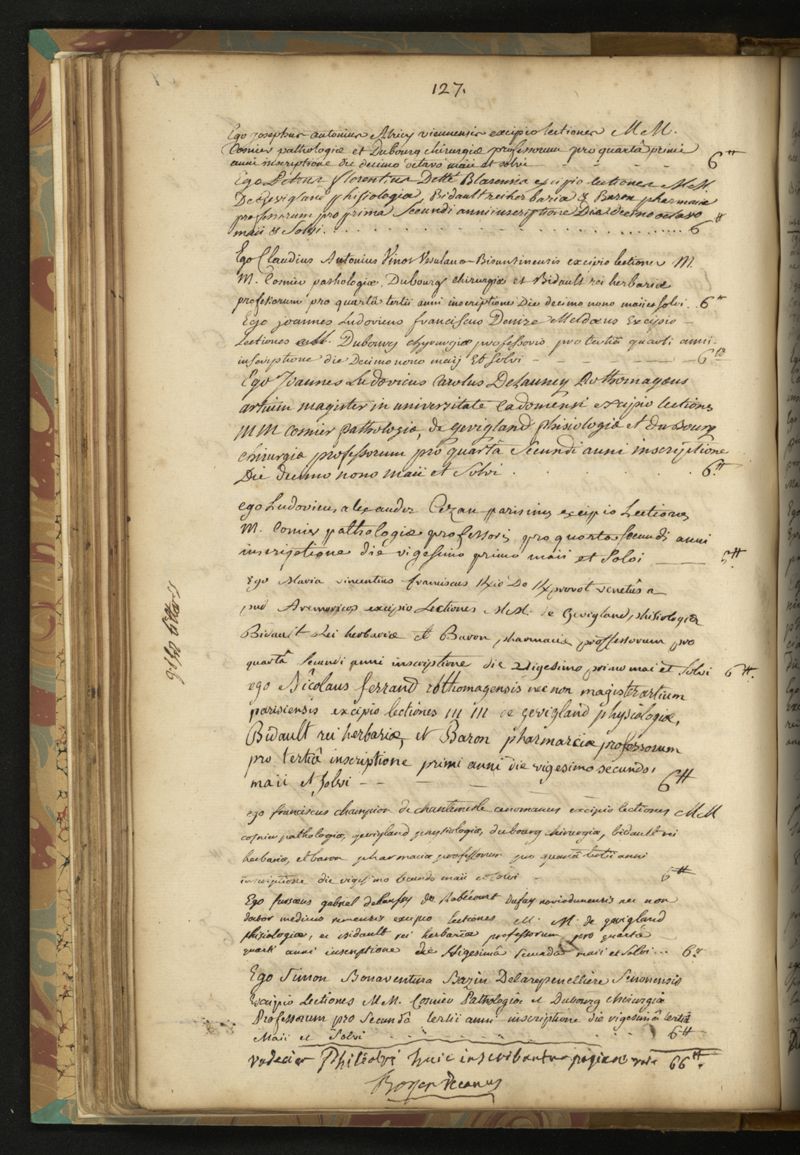 127.
Ego Josephus antonius Viennensis excipio lectiones M M.
Cosnier pathologiæ et Dubourg chirurgiæ professorum pro quartâ primi
anni inscriptione die decimo octavo maii et solvi 6 ₶
Ego Petrus florentius Blarennia excipio lectiones M.M.
De Gevigland phisiologiæ, Bidault rei herbariæ & Baron pharmaciæ
professorum pro prima secundi anni inscriptione Dia decimo octavo
maii et solvi. 6 ₶
Ego Claudius Antonius Vesulano-Bisuntinensis excipio lectiones M.
M. Cosnier pathologiæ, Dubourg chirurgiæ et Bidault rei herbariæ
professorum pro quartâ tertii anni inscriptione Die decimo nono maii et solvi. 6 ₶
Ego joannes Ludovicus franciscus Denize Meldæus Excipio
Lectiones M. Dubourg chyrurgiæ professoris pro tertiâ quarti anni
inscriptione die Decimo nono maij Et solvi 6 ₶
Ego Joannes Ludovicus Carolus Delauney Rothomagæus
artium magister in universitate Cadomensi excipio lectiones
MM Cosnier pathologiæ, de gevigland phisiologiæ et Dubourg
chirurgiæ professorum pro quartâ secundi anni inscriptione
Die decimo nono maii et solvi. 6 ₶
ego Ludovicus alexander Cezan parisinus excipio Lectiones
M. Cosnier pathologiæ professoris pro quarta secundi anni
inscriptione die vigesimo primo maii et solvi
Ego Maria vincentius franciscus venetus a
pud Aremoricos excipio Lectiones M.M. de Gevigland, phisiologiæ
Bidault Rei herbariæ et Baron pharmaciæ professorum pro
quartâ secundi anni inscriptione die vigesimo primo maii et solvi 6 ₶.
ego Nicolaus ferrand rothomagensis nec non magister artium
parisiensis excipio lectiones M M de gevigland physiologiæ,
Bidault rei herbariæ, et Baron pharmaciæ professorum
pro tertiâ inscriptione primi anni die vigesimo secundo
maii et solvi 6 ₶
ego franciscus champion de chantemesle cenomanus excipio lectiones M M
cosnier pathologiæ, gevigland physiologiæ, dubourg chirurgiæ, bidault rei
herbariæ, et baron pharmaciæ professorum pro quartâ tertii anni
inscriptione die vigesimo secundo maii et solvi 6 ₶
Ego gabriel noviodunensis nec non
doctor medicus remensis excipio lectiones M. M. de gevigland
phisiologiæ, et Bidault rei herbariæ professorum pro quartâ
quarti anni inscriptione die vigesimâ secundâ maii et solvi... 6
Ego Simon Bonaventura Bazin Delarepenelliere Senonensis
Excipio Lectiones M.M. Cosnier Pathologiæ et Dubourg chirurgiæ
Professorum pro secundâ tertii anni inscriptione die vigesimâ tertiâ
Maii et solvi 6 ₶
Philiatri huic inscribuntur paginæ 66 ₶.
Boyer Decanus